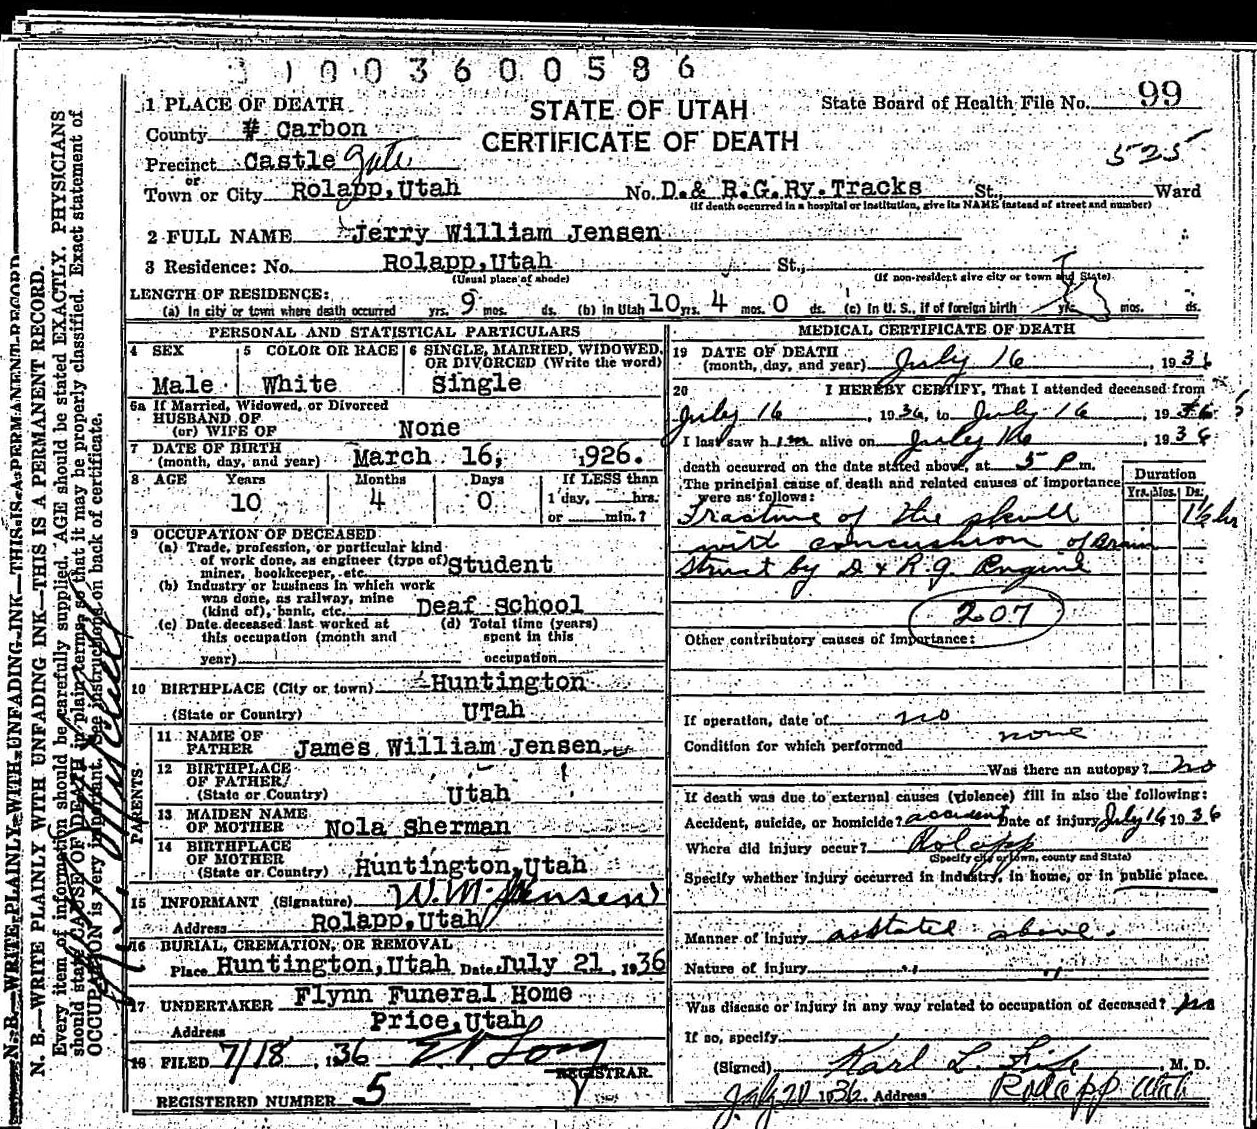 3 1 0 0 3 6 0 0 5 8 6
STATE OF UTAH
CERTIFICATE OF DEATH
State Board of Health File No. 99
525
1 PLACE OF DEATH
County # Carbon
Precinct Castle gate
or
Town or City Rolapp, Utah No. D. & R.G.Ry. Tracks St., Ward
(If death occurred in a hospital or institution, give its NAME instead of street and number)
2 FULL NAME Jerry William Jensen
3 Residence: No. Rolapp, Utah St.,
(Usual place of abode) (If non-resident give city or town and State)
LENGTH OF RESIDENCE:
(a) In city or town where death occurred yrs. 9 mos. ds. (b) In Utah 10 yrs. 4 mos. 0 ds. (c) In U. S., if of foreign birth yrs. mos. ds.
PERSONAL AND STATISTICAL PARTICULARS
4 SEX
Male
5 COLOR OR RACE
White
6 SINGLE, MARRIED, WIDOWED,
OR DIVORCED (Write the word)
Single
6a If Married, Widowed, or Divorced
HUSBAND OF
(or) WIFE OF None
7 DATE OF BIRTH
(month, day, and year) March 16, 1926.
8 AGE Years Months Days If LESS than
10 4 0 1 day, hrs.
or min.?
9 OCCUPATION OF DECEASED
(a) Trade, profession, or particular kind
of work done, as engineer (type of)
miner, bookkeeper, etc. Student
(b) Industry or business in which work
was done, as railway, mine
(kind of), bank, etc. Deaf School
(c) Date deceased last worked at
this occupation (month and
year)
(d) Total time (years)
spent in this
occupation
10 BIRTHPLACE (City or town) Huntington
(State or Country) UTah
PARENTS
11 NAME OF
FATHER James William Jensen
12 BIRTHPLACE
OF FATHER
(State or Country) Utah
13 MAIDEN NAME
OF MOTHER Nola Sherman
14 BIRTHPLACE
OF MOTHER
(State or Country) Huntington, Utah
15 INFORMANT (Signature) W. M. Jensen
Address Rolapp, Utah
16 BURIAL, CREMATION, OR REMOVAL
Place Huntington, Utah Date July 21, 1936
17 UNDERTAKER Flynn Funeral Home
Address Price, Utah
18 FILED 7/18, 1936
REGISTRAR.
REGISTERED NUMBER 5
MEDICAL CERTIFICATE OF DEATH
19 DATE OF DEATH
(month, day, and year) July 16, 1936
20 I HEREBY CERTIFY, That I attended deceased from
July 16, 1936, to July 16, 1936
I last saw him alive on July 16, 1936
death occurred on the date stated above, at 5 P m.
The principal cause of death and related causes of importance
were as follows:
Duration
Yrs. Mos. Ds.
Fracture of the skull 1½ hr
with concushion of Brain
Struct by D & R.G. Engine
207
Other contributory causes of importance:
If operation, date of no
Condition for which performed none
Was there an autopsy? no
If death was due to external causes (violence) fill in also the following:
Accident, suicide, or homicide? accident Date of injury July 16 1936
Where did injury occur? Rolapp
(Specify city or town, county and State)
Specify whether injury occurred in industry, in home, or in public place.
Manner of injury as stated above.
Nature of injury " "
Was disease or injury in any way related to occupation of deceased? no
If so, specify
(Signed) Karl L. Fife, M. D.
July 20 1936 Address Rolapp Utah
N. B.—WRITE PLAINLY WITH UNFADING INK—THIS IS A PERMANENT RECORD
N. B.—WRITE PLAINLY WITH UNFADING INK—THIS IS A PERMANENT RECORD.
Every item of information should be carefully supplied. AGE should be stated EXACTLY. PHYSICIANS
should state CAUSE OF DEATH in plain terms, so that it may be properly classified. Exact statement of
OCCUPATION is very important. See instructions on back of certificate.